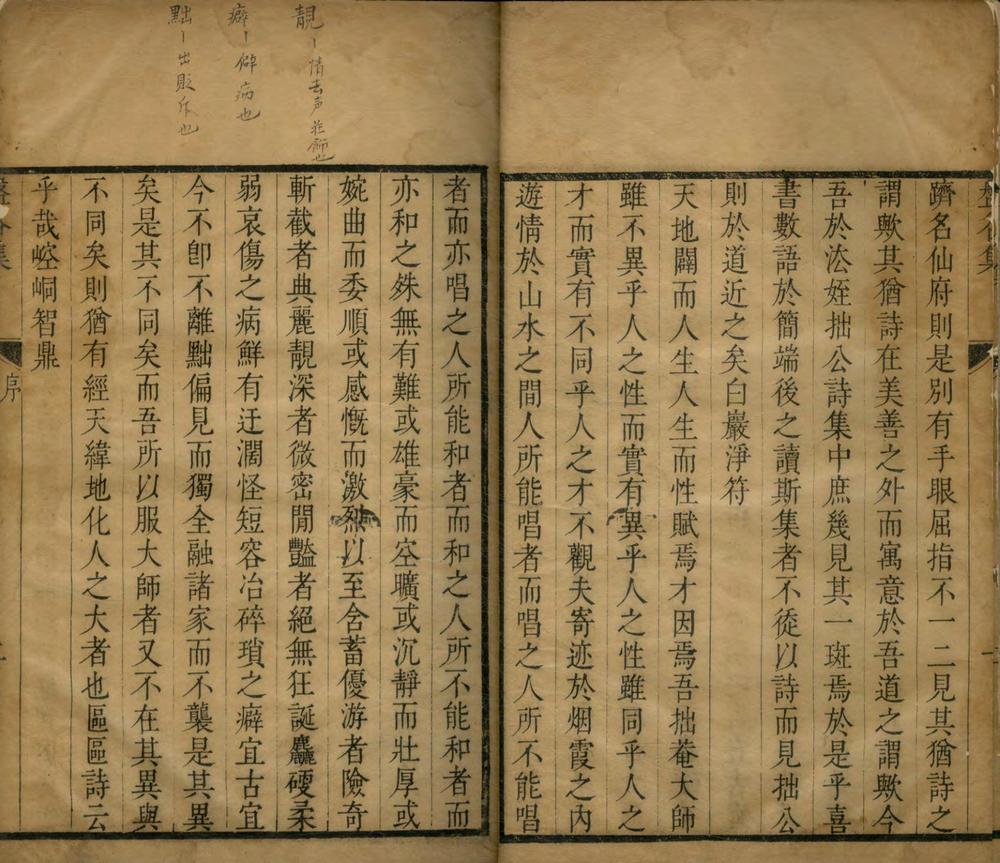 躋名仙府則是別有手眼屈指不一二見其猶詩之
謂歟其猶詩在美善之外而寓意於吾道之謂歟今
吾於法姪拙公詩集中庶幾見其一斑焉於是乎喜
書數語於簡端後之讀斯集者不徒以詩而見拙公
則於道近之矣白巖淨符
天地闢而人生人生而性賦焉才因焉吾拙菴大師
雖不異乎人之性而實有異乎人之性雖同乎人之
才而實有不同乎人之才不觀夫寄迹於烟霞之內
遊情於山水之間人所能唱者而唱之人所不能唱
者而亦唱之人所能和者而和之人所不能和者而
亦和之殊無有難或雄豪而空曠或沉靜而壯厚或
婉曲而委順或感慨而激烈以至含蓄優游者險奇
斬截者典麗靚深者微密閒豔者絕無狂誕麤硬柔
弱哀傷之病鮮有迂濶怪短容冶碎瑣之癖宜古宜
今不卽不離黜偏見而獨全融諸家而不襲是其異
矣是其不同矣而吾所以服大師者又不在其異與
不同矣則猶有經天緯地化人之大者也區區詩云
乎哉崆峒智鼎
序
靚 丨情去声莊飾也
癖 丨僻病也
黜 丨出貶斥也